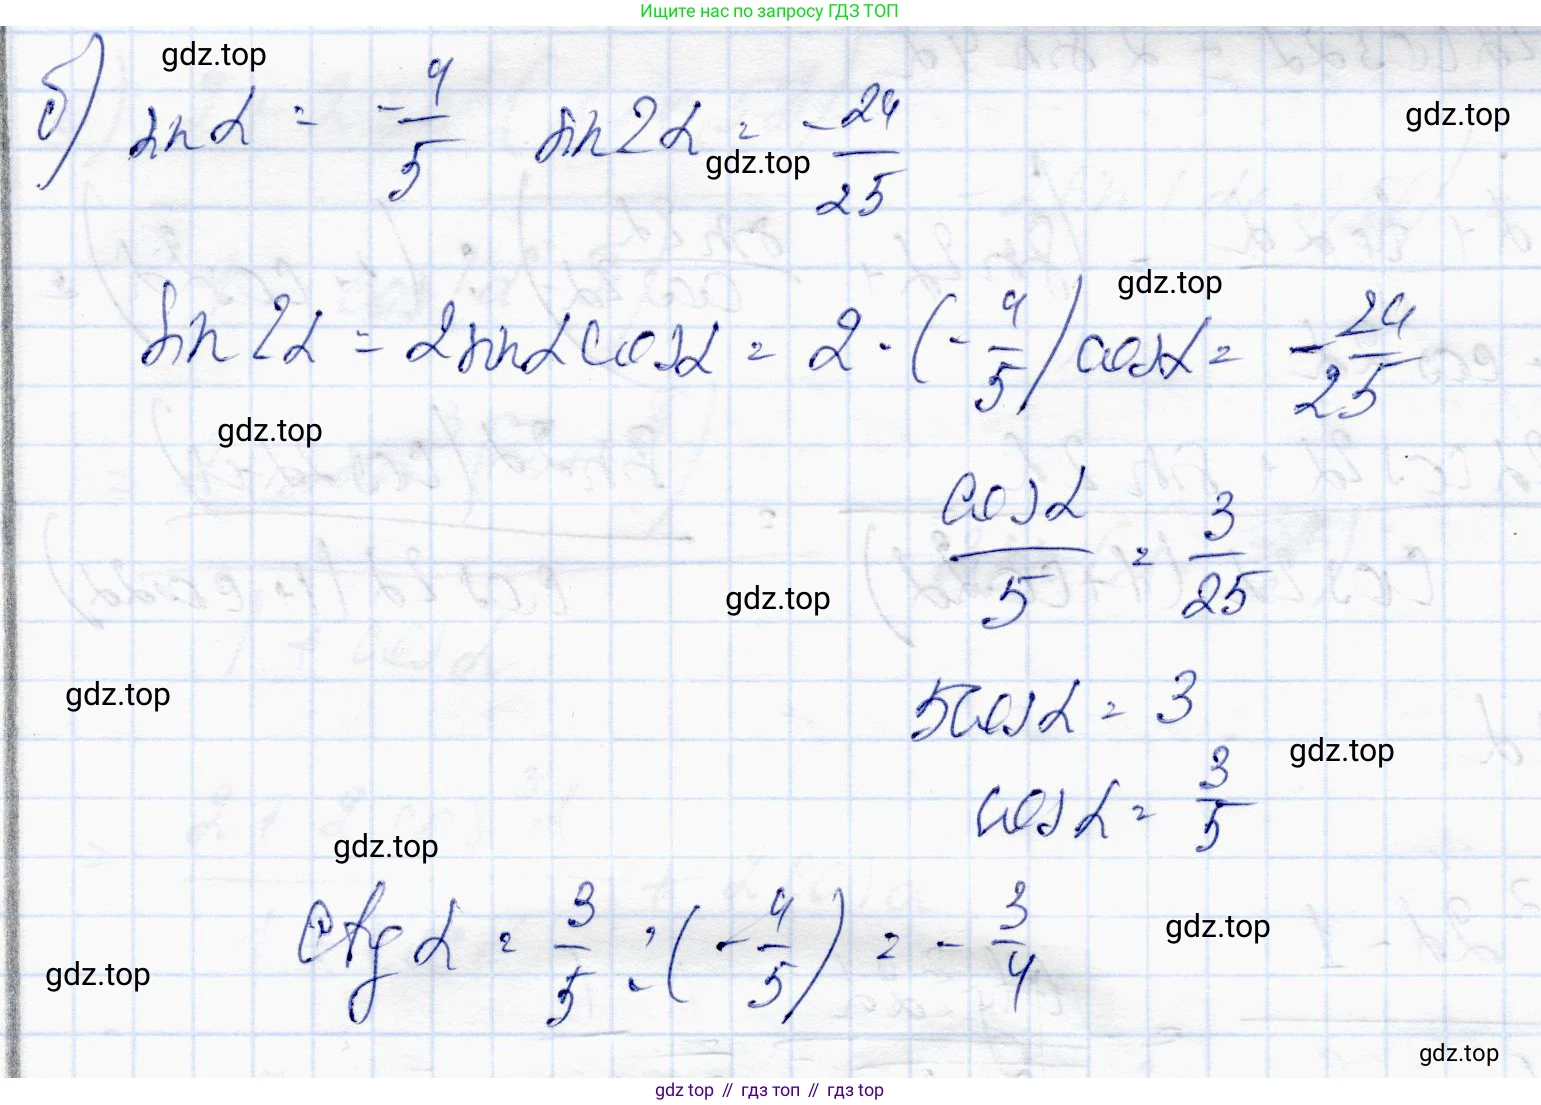 Ищите нас по запросу ГДЗ ТОП
gdz.top
б) sin α = -4/5 sin 2α = -24/25
gdz.top
gdz.top
gdz.top
sin 2α = 2 sin α cos α = 2 · (-4/5) cos α = -24/25
gdz.top
cos α/5 = 3/25
gdz.top
gdz.top
5 cos α = 3
gdz.top
cos α = 3/5
gdz.top
ctg α = 3/5 : (-4/5) = -3/4
gdz.top
gdz.top
gdz.top
gdz top // гдз топ // gdz.top